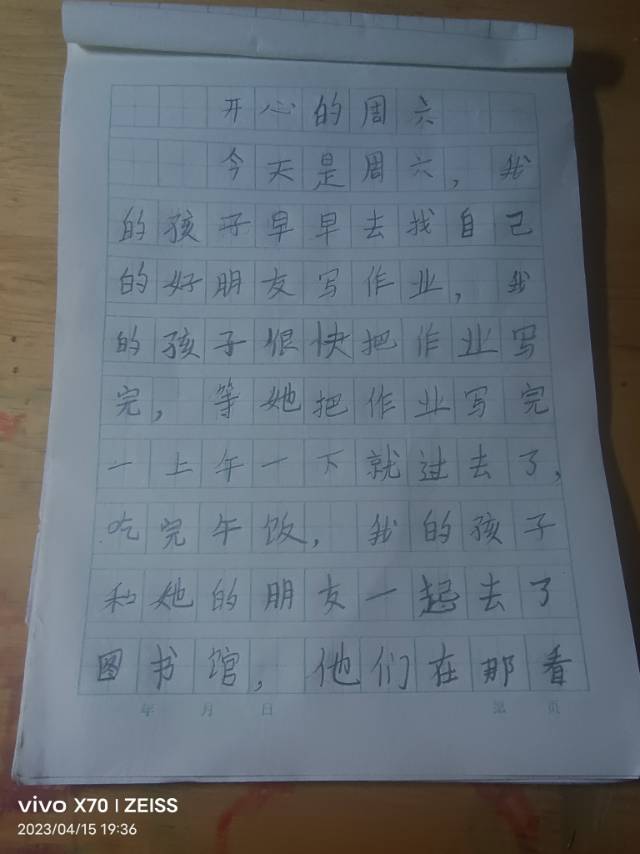 开心的周六
今天是周六，我
的孩子早早去找自己
的好朋友写作业，我
的孩子很快把作业写
完，等她把作业写完
一上午一下就过去了，
吃完午饭，我的孩子
和她的朋友一起去了
图书馆，他们在那看
年 月 日 第 页
vivo X70 | ZEISS
2023/04/15 19:36